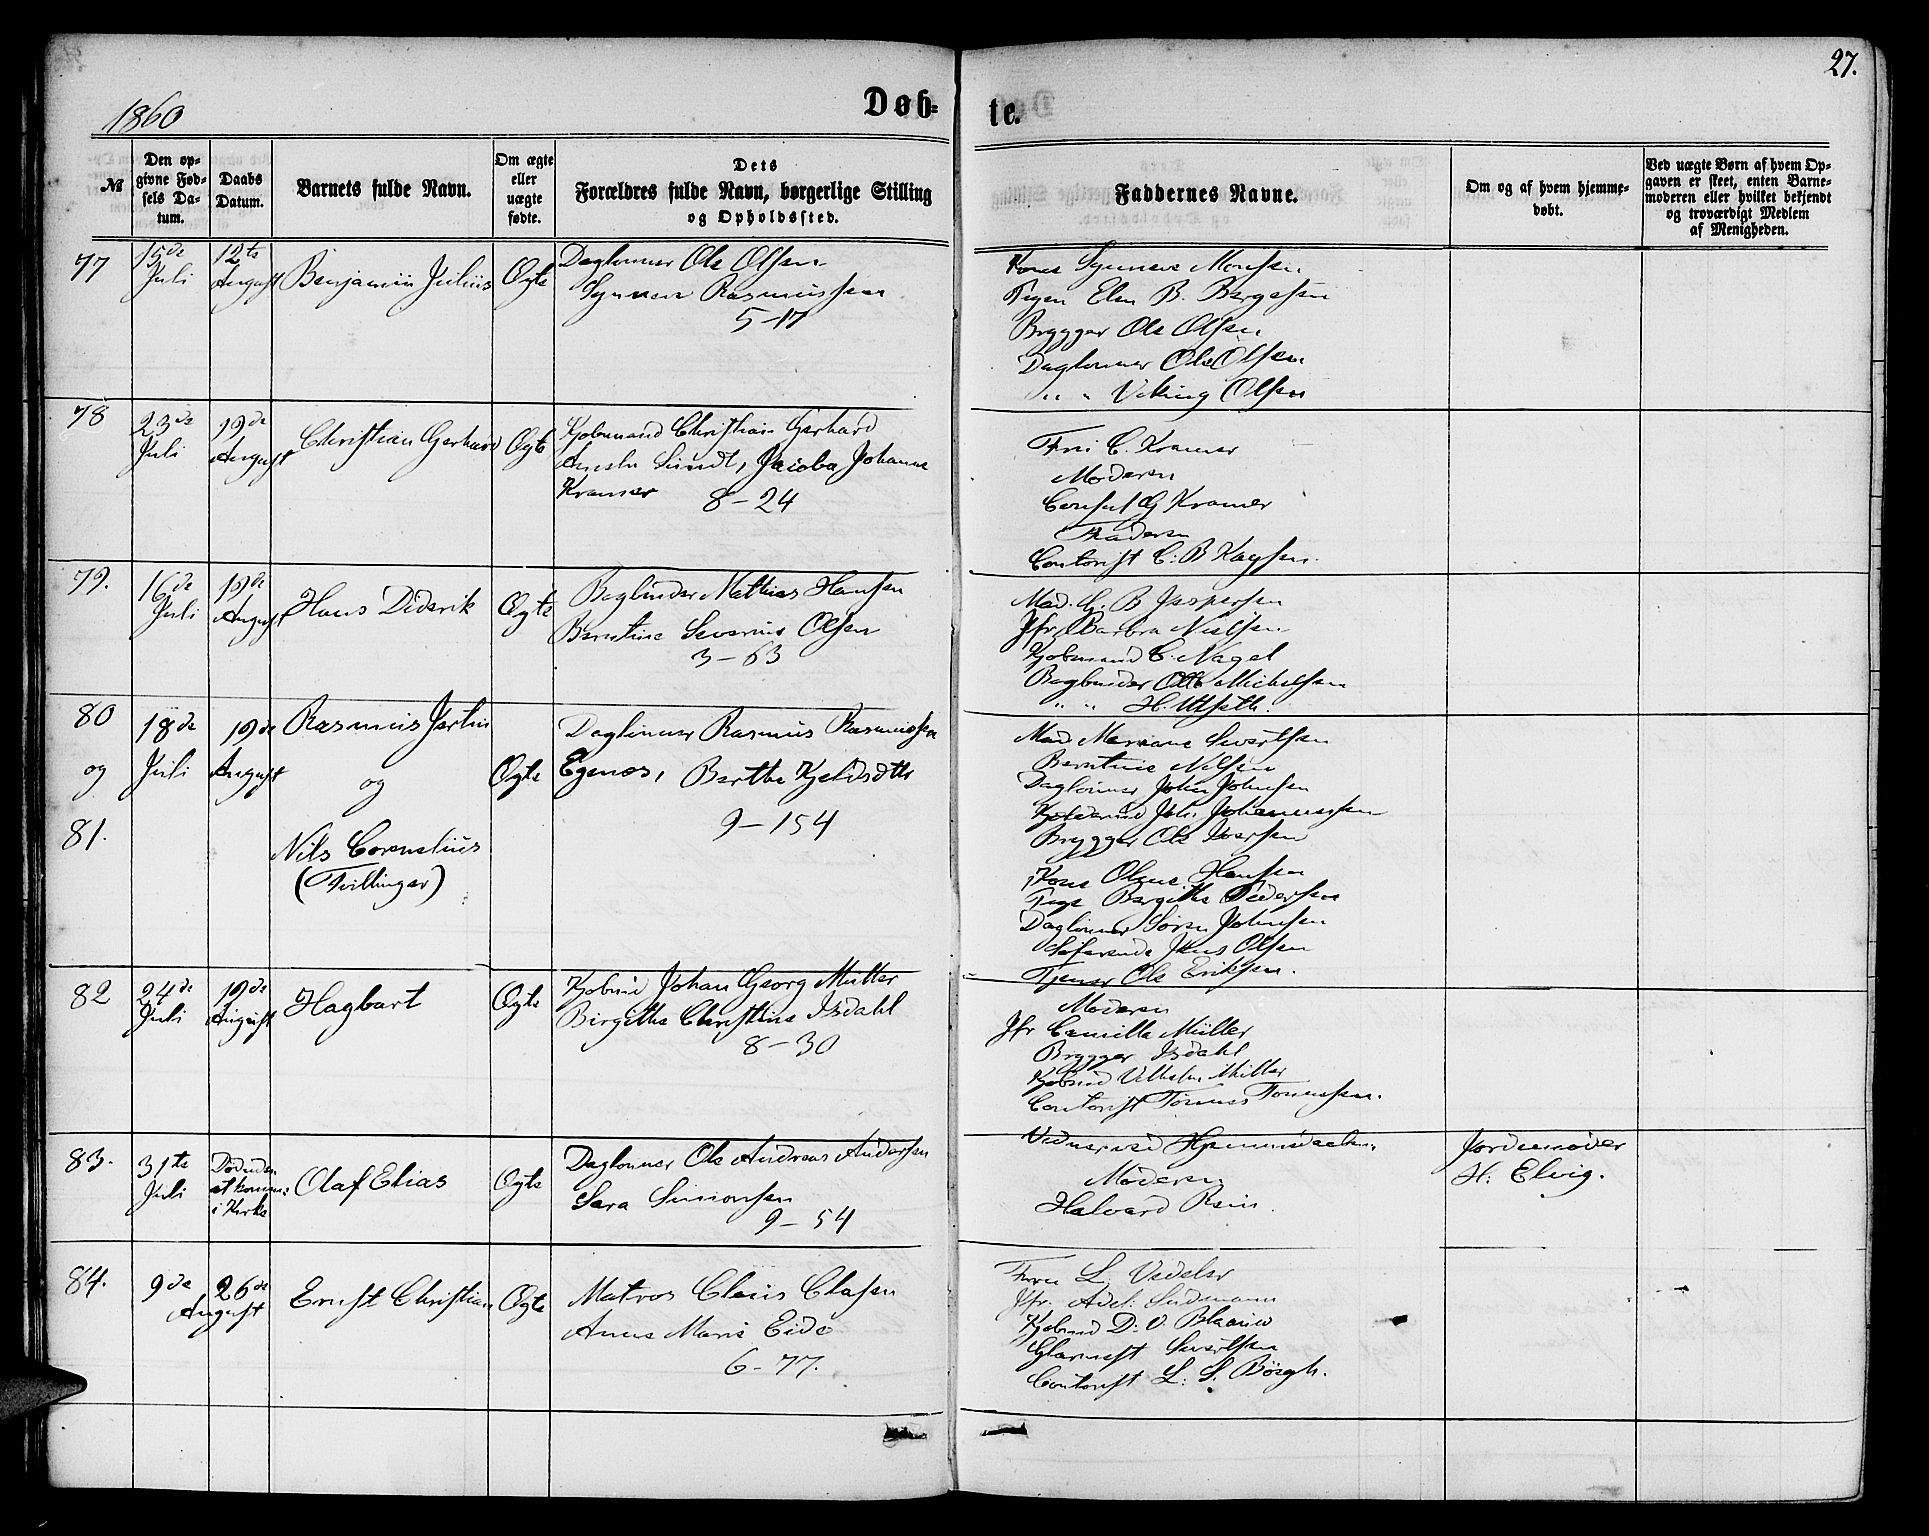 27.
1860
Døb-
te.
№
Den op-
givne Fød-
sels Da-
tum.
Daabs
Datum.
Barnets fulde Navn.
Om ægte
eller
uægte
fødte.
Dets
Forældres fulde Navn, borgerlige Stilling
og Opholdssted.
Faddernes Navne.
Om og af hvem hjemme-
døbt.
Ved uægte Børn af hvem Op-
gaven er skeet, enten Barne-
moderen eller hvilket bekjendt
og troværdigt Medlem
af Menigheden.
77
15de
Juli
12te
August
Benjamin Julius
Ægte
Daglønner Ole Olsen
Synneve Rasmussen
5-17
Kone Synneve Monsen
Pigen Elen B. Bergesen
Brygger Ole Olsen
Daglønner Ole Olsen
" " Viking Olsen
78
23de
Juli
19de
August
Christian Gerhard
Ægte
Kjøbmand Christian Gerhard
Ameln Sundt, Jacoba Johanne
Kramer 8-24
Fru C. Kramer
Moderen
Consul G Kramer
Faderen
Contorist C. B Kaysen.
79.
16de
Juli
19de
August
Hans Diderik
Ægte
Bogbinder Mathias Hansen
Berntine Severine Olsen
3-63
Mad. G. B Jespersen
Jfr. Barbra Nielsen
Kjøbmand C. Nagel
Bogbinder Otto Michelsen
" " H. Utseth.
80
og
81.
18de
Juli
19de
August
Rasmus Jartin
og
Nils Cornelius
(Tvillinger)
Ægte
Daglønner Rasmus Rasmussen
Egenes, Berthe Kjeldsdtr
9-154
Mad Mariane Sivertsen
Berntine Nilsen
Daglønner John Johnsen
Kjøbmand Joh. Johannessen
Brygger Ole Iversen
Kone Olene Hansen
Pige Bergitte Pedersen
Daglønner Søren Johnsen
Søfarende Jens Olsen
Tjener Ole Eriksen.
82
24de
Juli
19de
August
Hagbart
Ægte
Kjøbmd Johan Georg Müller
Birgitte Christine Isdahl
8-30
Moderen
Jfr Camilla Müller
Brygger Isdahl
Kjøbmd Vilhelm Müller
Contorist Tønnes Tønnesen.
83.
31te
Juli
Død uden
at komme
i Kirke
Olaf Elias
Ægte
Daglønner Ole Andreas Andersen
Sara Simonsen
9-54
Vidner ved Hjemmedaaben
Moderen
Halvard Rein.
Jordemoder
H. Elvig.
84.
9de
26de
August
Ernst Christian
Ægte
Matros Claus Clasen
Anne Marie Eide
6-77.
Fru L. Vedeler
Jfr. Adel. Sudmann
Kjøbmd D. O. Blaauw
Glarmest Sivertsen
Contorist L. S. Børgh.